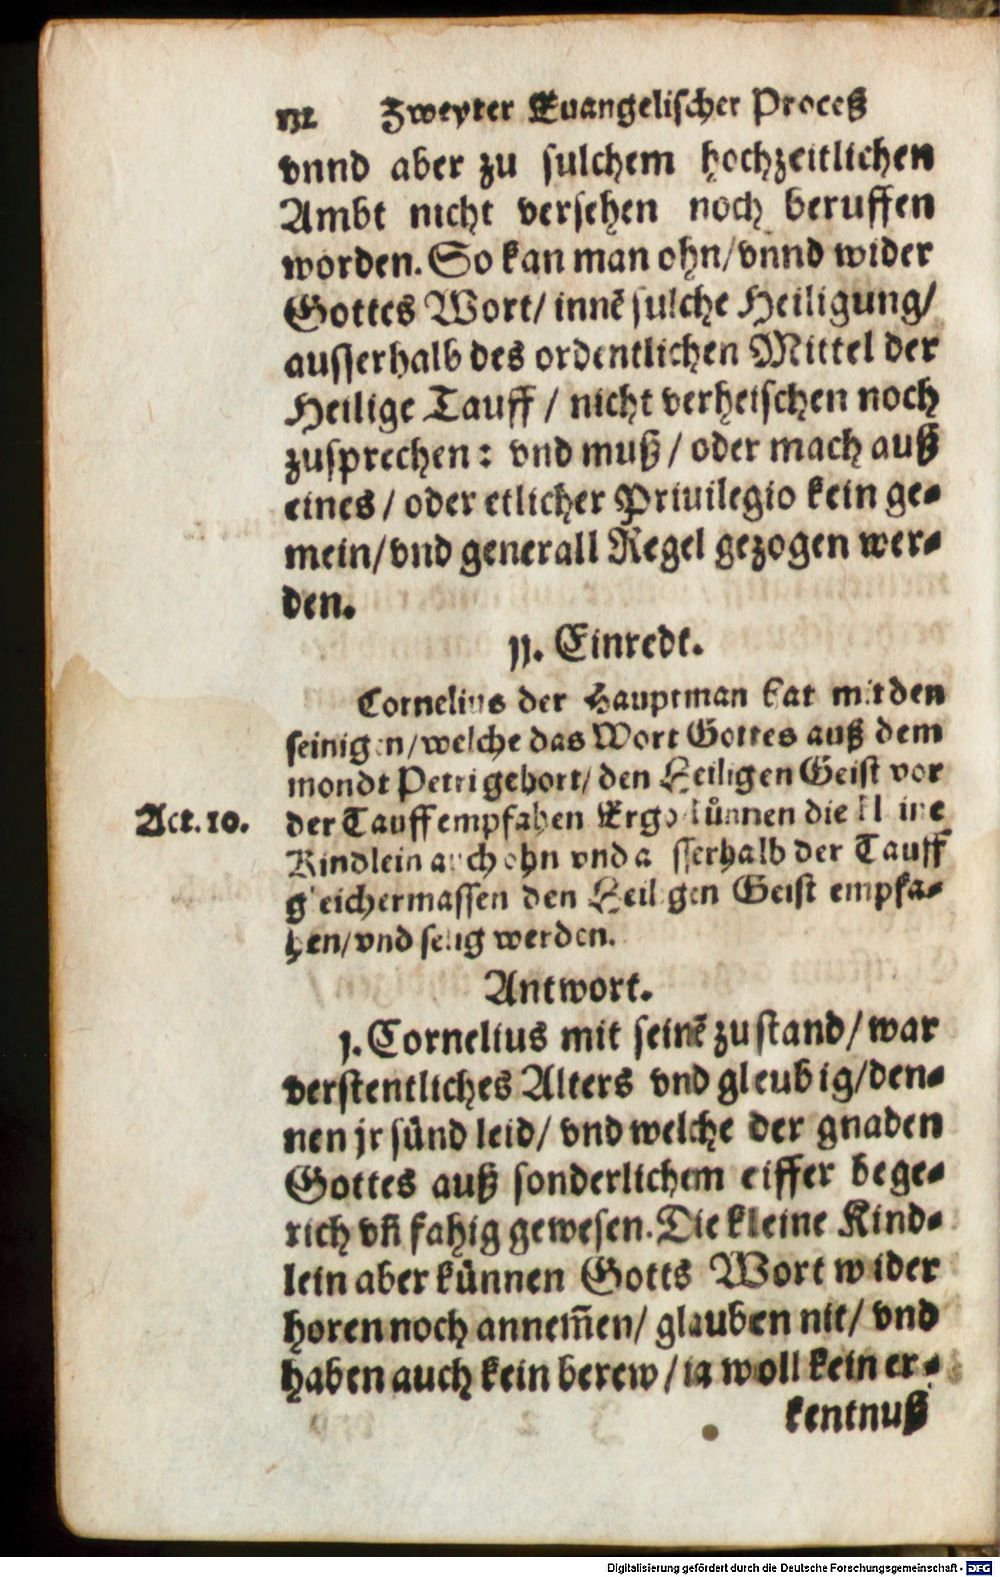 132 Zweyter Euangelischer Proceß
vnnd aber zu sulchem hochzeitlichen
Ambt nicht versehen noch beruffen
worden. So kan man ohn/vnnd wider
Gottes Wort/ innē sulche Heiligung/
ausserhalb des ordentlichen Mittel der
Heilige Tauff / nicht verheischen noch
zusprechen: vnd muß / oder mach auß
eines / oder etlicher Priuilegio kein ge-
mein/vnd generall Regel gezogen wer-
den.
jj. Einredt.
Cornelius der Hauptman hat mit den
seinigen/welche das Wort Gottes auß dem
mondt Petri gehort/ den Heiligen Geist vor
Act. 10. der Tauff empfahen Ergo künnen die kleine
Kindlein auch ohn vnd ausserhalb der Tauff
gleichermassen den Heiligen Geist empfa-
hen/vnd selig werden.
Antwort.
j. Cornelius mit seinē zustand/war
verstentliches Alters vnd gleubig/den-
nen jr sünd leid/ vnd welche der gnaden
Gottes auß sonderlichem eiffer bege-
rich vñ fahig gewesen. Die kleine Kind-
lein aber künnen Gotts Wort wider
horen noch annem̃en/ glauben nit/ vnd
haben auch kein berew/ia woll kein er-
kentnuß
Digitalisierung gefördert durch die Deutsche Forschungsgemeinschaft - DFG